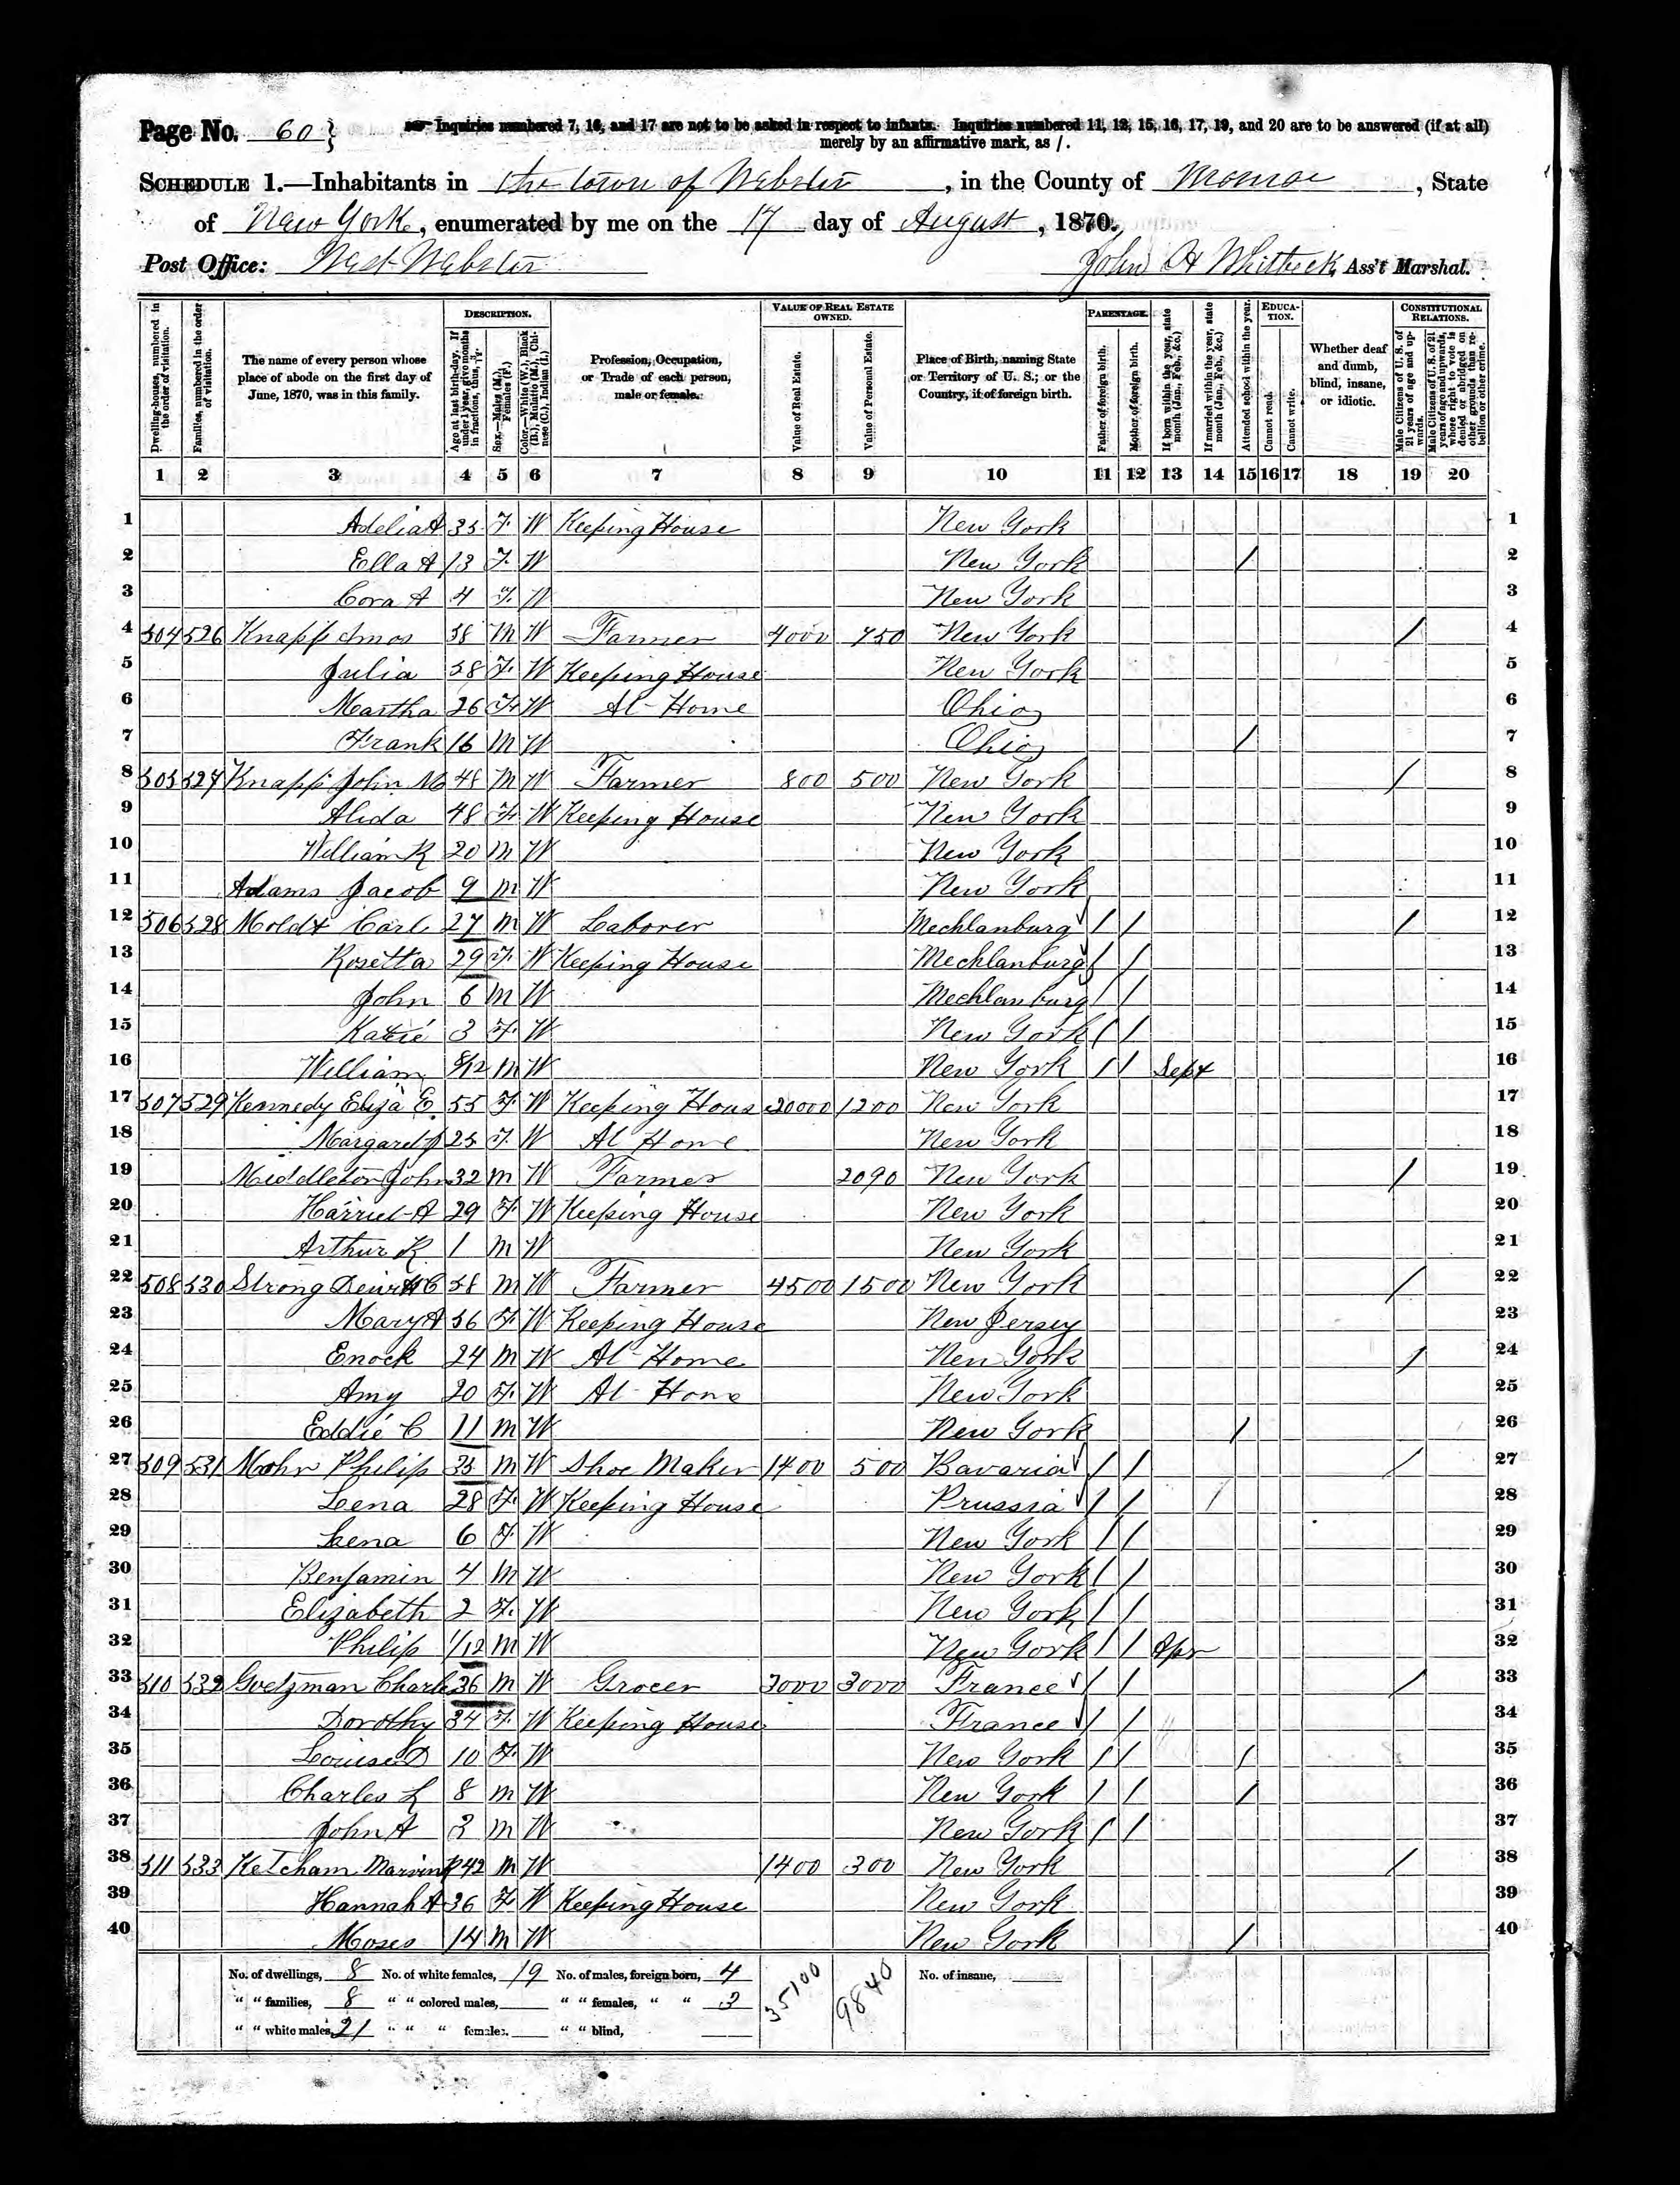 Page No. 60
Inquiries numbered 7, 16, and 17 are not to be asked in respect to infants. Inquiries numbered 11, 12, 15, 16, 17, 19, and 20 are to be answered (if at all)
merely by an affirmative mark, as /.
SCHEDULE 1.—Inhabitants in the town of Webster, in the County of Monroe, State
of New York, enumerated by me on the 17 day of August, 1870.
Post Office: West Webster John H Whitbeck, Ass't Marshal.
Dwelling-houses, numbered in the order of visitation.
Families, numbered in the order of visitation.
The name of every person whose place of abode on the first day of June, 1870, was in this family.
DESCRIPTION.
Age at last birth-day. If under 1 year, give months in fractions, thus, 3/12.
Sex.—Males (M.), Females (F.)
Color.—White (W.), Black (B.), Mulatto (M.), Chinese (C.), Indian (I.)
Profession, Occupation, or Trade of each person, male or female.
VALUE OF REAL ESTATE OWNED.
Value of Real Estate.
Value of Personal Estate.
Place of Birth, naming State or Territory of U. S.; or the Country, if of foreign birth.
PARENTAGE.
Father of foreign birth.
Mother of foreign birth.
If born within the year, state month (Jan., Feb., &c.)
If married within the year, state month (Jan., Feb., &c.)
Attended school within the year.
EDUCATION.
Cannot read.
Cannot write.
Whether deaf and dumb, blind, insane, or idiotic.
CONSTITUTIONAL RELATIONS.
Male Citizens of U. S. of 21 years of age and upwards.
Male Citizens of U. S. of 21 years of age and upwards, whose right to vote is denied or abridged on other grounds than rebellion or other crime.
1 2 3 4 5 6 7 8 9 10 11 12 13 14 15 16 17 18 19 20
1 Adelia A 35 F. W Keeping House New York 1
2 Ella A 13 F. W New York / 2
3 Cora A 4 F. W New York 3
4 504 526 Knapp Amos 58 M W Farmer 4000 750 New York / 4
5 Julia 58 F. W Keeping House New York 5
6 Martha 26 F. W At Home Ohio 6
7 Frank 16 M W Ohio / 7
8 505 527 Knapp John M 48 M W Farmer 800 500 New York / 8
9 Alida 48 F. W Keeping House New York 9
10 William R 20 M W New York 10
11 Adams Jacob 9 M W New York 11
12 506 528 Moldt Carl 27 M W Laborer Mechlanburg / / / 12
13 Rosetta 29 F. W Keeping House Mechlanburg / / 13
14 John 6 M W Mechlanburg / / 14
15 Katie 3 F. W New York / / 15
16 William 8/12 M W New York / / Sept 16
17 507 529 Kennedy Eliza E. 55 F W Keeping Hous 20000 1200 New York 17
18 Margaret J 25 F. W At Home New York 18
19 Middleton John 32 M W Farmer 2090 New York / 19
20 Harriet A 29 F. W Keeping House New York 20
21 Arthur R 1 M W New York 21
22 508 530 Strong Dewitt C 58 M W Farmer 4500 1500 New York / 22
23 Mary A 56 F. W Keeping House New Jersey 23
24 Enock 24 M W At Home New York / 24
25 Amy 20 F. W At Home New York 25
26 Eddie C 11 M W New York / 26
27 509 531 Mohr Philip 35 M W Shoe Maker 1400 500 Bavaria / / / 27
28 Lena 28 F. W Keeping House Prussia / / / 28
29 Lena 6 F W New York / / 29
30 Benjamin 4 M W New York / / 30
31 Elizabeth 2 F. W New York / / 31
32 Philip 1/12 M W New York / / Apr 32
33 510 532 Goetzman Charl 36 M W Grocer 3000 3000 France / / / 33
34 Dorothy 34 F. W Keeping House France / / 34
35 Louise D 10 F. W New York / / / 35
36 Charles L 8 M W New York / / / 36
37 John A 3 M W New York / / 37
38 511 533 Ketcham Marvin P 42 M W 1400 300 New York / 38
39 Hannah A 36 F. W Keeping House New York 39
40 Moses 14 M W New York / 40
No. of dwellings, 8 No. of white females, 19 No. of males, foreign born, 4 35100 9840 No. of insane,
" " families, 8 " " colored males, " " females, " " 3
" " white males, 21 " " " females, " " blind,